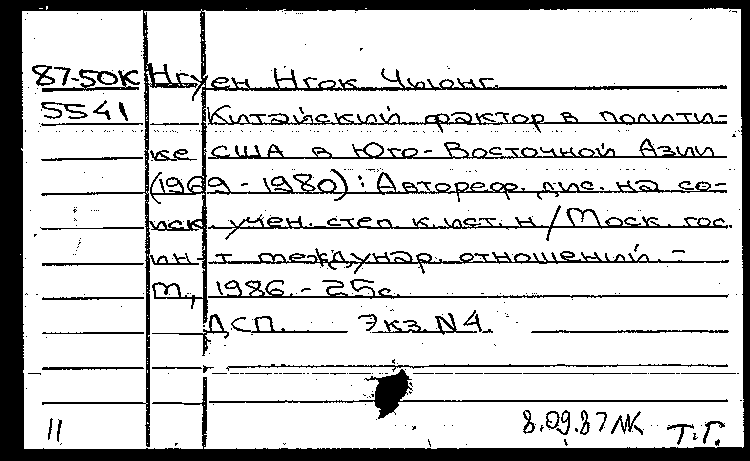 87-50К Нгуен Нгок Чыонг.
5541 Китайский фактор в полити-
ке США в Юго-Восточной Азии
(1969 - 1980) : Автореф. дис. на со-
иск. учен. степ. к. ист. н / Моск. гос.
ин-т междунар. отношений. -
М., 1986. - 25с.
ДСП. Экз. N4.
11 8.09.87 Т.Г.